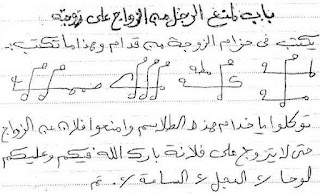 باب لمنع الرجل من الزواج على زوجته
يكتب فى حزام الزوجة من قدام وهذا ما تكتب :.
توكلوا يا خدام هذه الطلاسم وامنعوا فلان من الزواج
حتى لا يتزوج على فلانة بارك الله فيكم وعليكم
الوحا ٢ العجل ٢ الساعة ٢ . تم